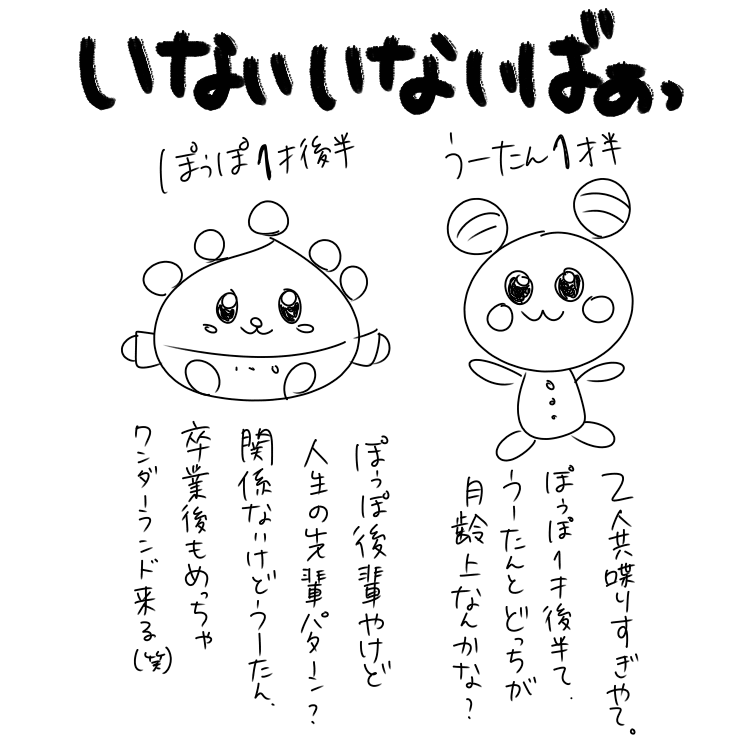 いないいないばあっ
うーたん1才半
ぽぅぽ1才後半
2人共喋りすぎやて。
ぽぅぽ1才後半て、
うーたんとどっちが
月齢上なんかな?
ぽぅぽ後輩やけど
人生の先輩パターン?
関係ないけどうーたん、
卒業後もめっちゃ
ワンダーランド来る(笑)